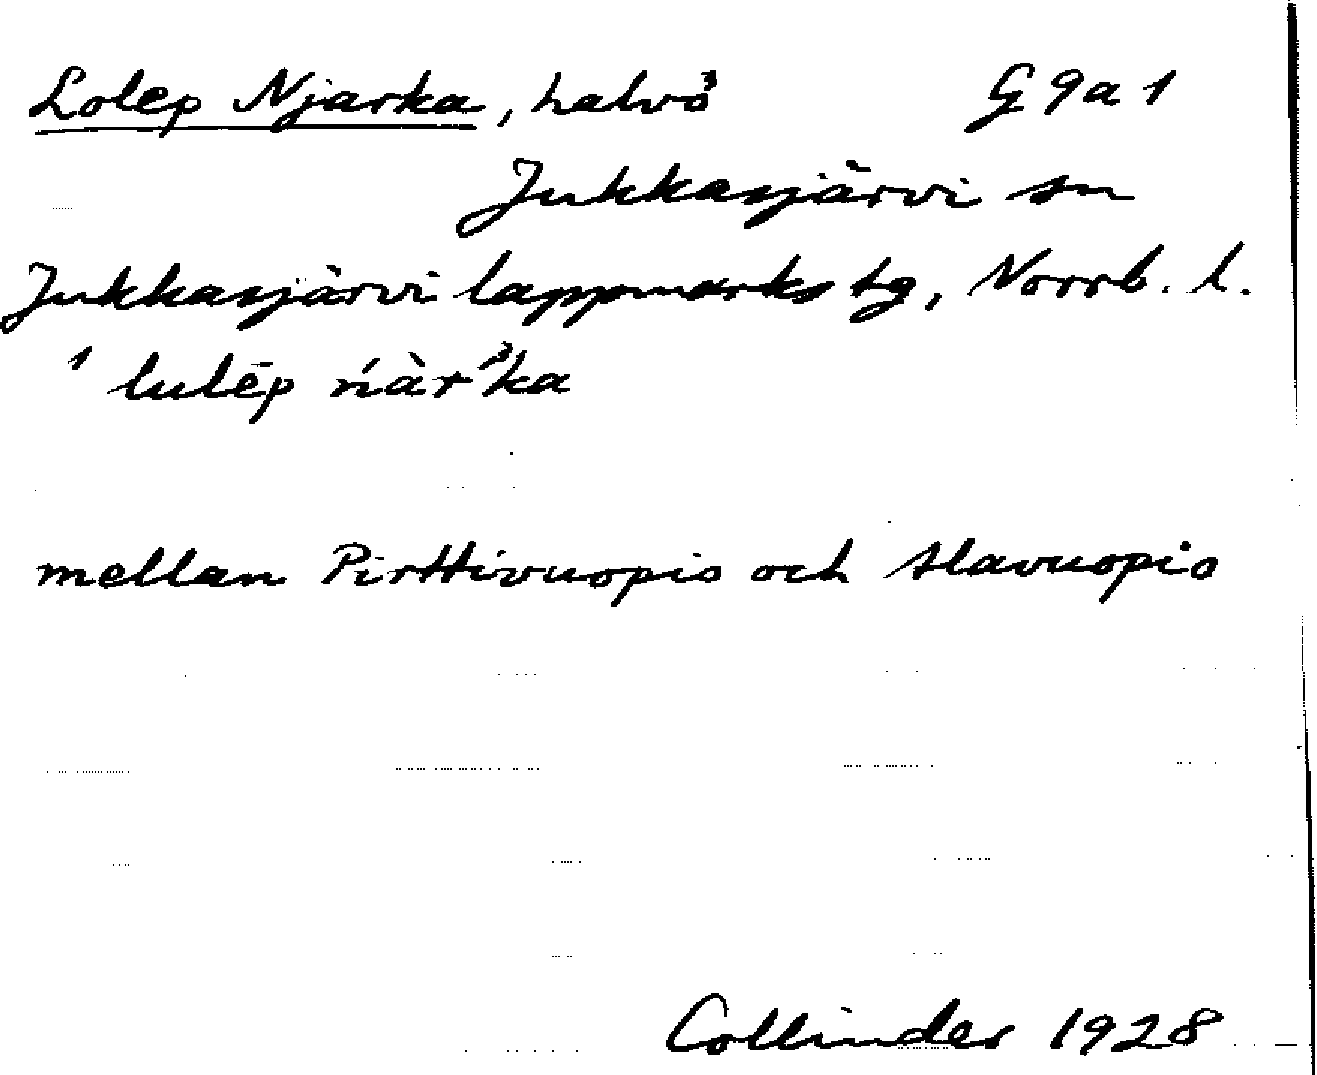 Lolep Njarka, halvö G 9 a 1
Jukkasjärvi sn
Jukkasjärvi lappmarks tg, Norrb. l.
lulēp ńàr'ka
mellan Pirttivuopio och Alavuopio
Collinder 1928